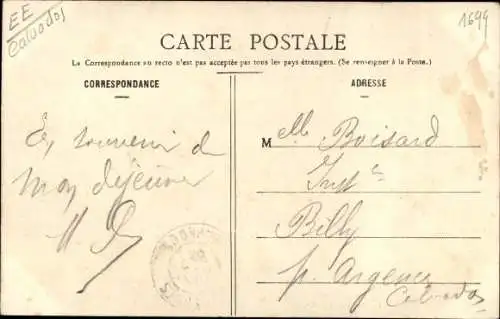 EE
Calvados
1699
CARTE POSTALE
La Correspondance au recto n'est pas acceptée par tous les pays étrangers. (Se renseigner à la Poste.)
CORRESPONDANCE
ADRESSE
En souvenir de
mon déjeuner
Melle Boisard
Instce
Billy
p. Argences
Calvados